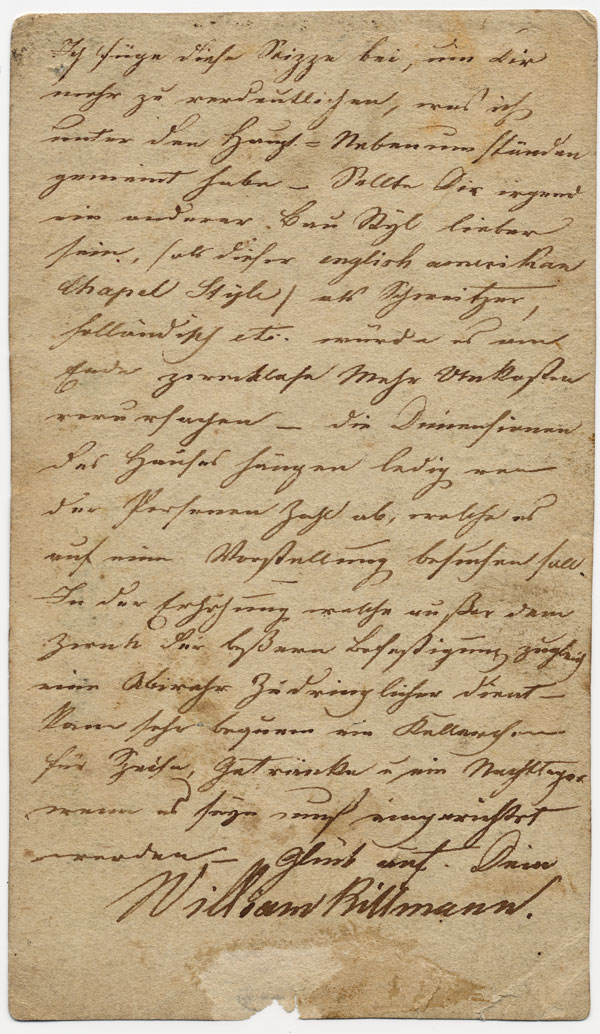 Ich füge diese Skizze bei, um Dir
mehr zu verdeutlichen, was ich
unter den Haupt = Nebenumständen
gemeint habe – Sollte Dir irgend
ein anderer Bau Styl lieber
sein, (als dieser english amerikan
Chapel Style) als Schweitzer,
holländisch etc. würde es am
Ende zwecklose Mehr Unkosten
verursachen – die Dimensionen
des Hauses hängen ledig von
der Personen Zahl ab, welche es
auf eine Vorstellung besuchen soll.
In der Erhöhung welche außer dem
Zweck der beßern Befestigung zugleich
eine Abwehr Zudringlicher dient –
kann sehr bequem ein Kellerchen
für Speise, Getränke u ein Nachtlager
wenn es seyn muß eingerichtet
werden – Glück auf. Dein
William Rillmann.